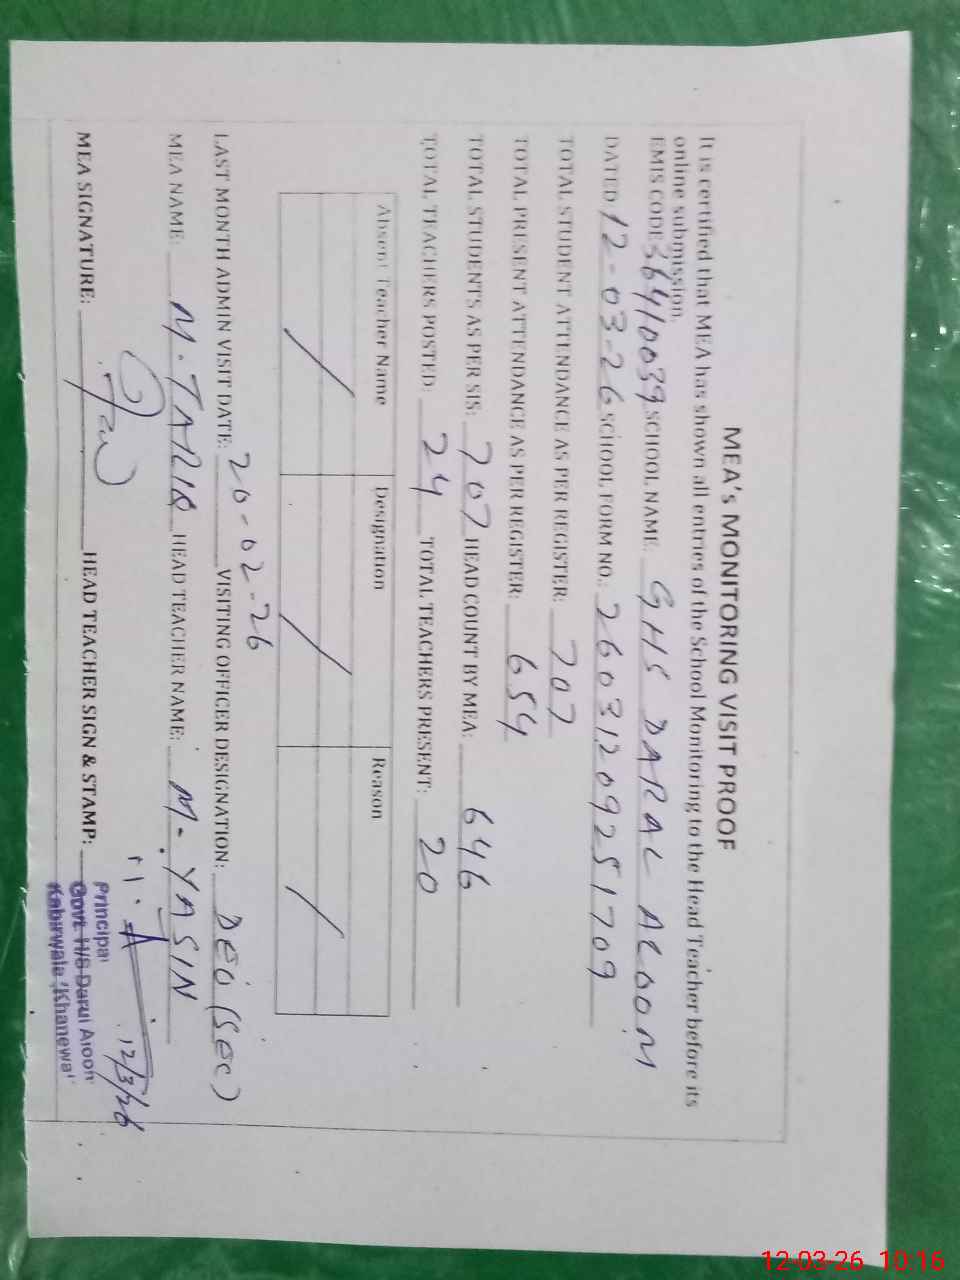 MEA's MONITORING VISIT PROOF
It is certified that MEA has shown all entries of the School Monitoring to the Head Teacher before its
online submission.
EMIS CODE 36410039 SCHOOL NAME: GHS DARAL ALOOM
DATED 12-03-26 SCHOOL FORM NO.: 26031209251709
TOTAL STUDENT ATTENDANCE AS PER REGISTER: 707
TOTAL PRESENT ATTENDANCE AS PER REGISTER: 654
TOTAL STUDENTS AS PER SIS: 707 HEAD COUNT BY MEA: 646
TOTAL TEACHERS POSTED: 24 TOTAL TEACHERS PRESENT: 20
Absent Teacher Name Designation Reason
LAST MONTH ADMIN VISIT DATE: 20-02-26 VISITING OFFICER DESIGNATION: DEO (SEC)
MEA NAME: M. TARIQ HEAD TEACHER NAME: M. YASIN
MEA SIGNATURE: HEAD TEACHER SIGN & STAMP: 12/3/26
Principal
Govt. H/S Darul Aloom
Kabirwala (Khanewal
12-03-26 10:16